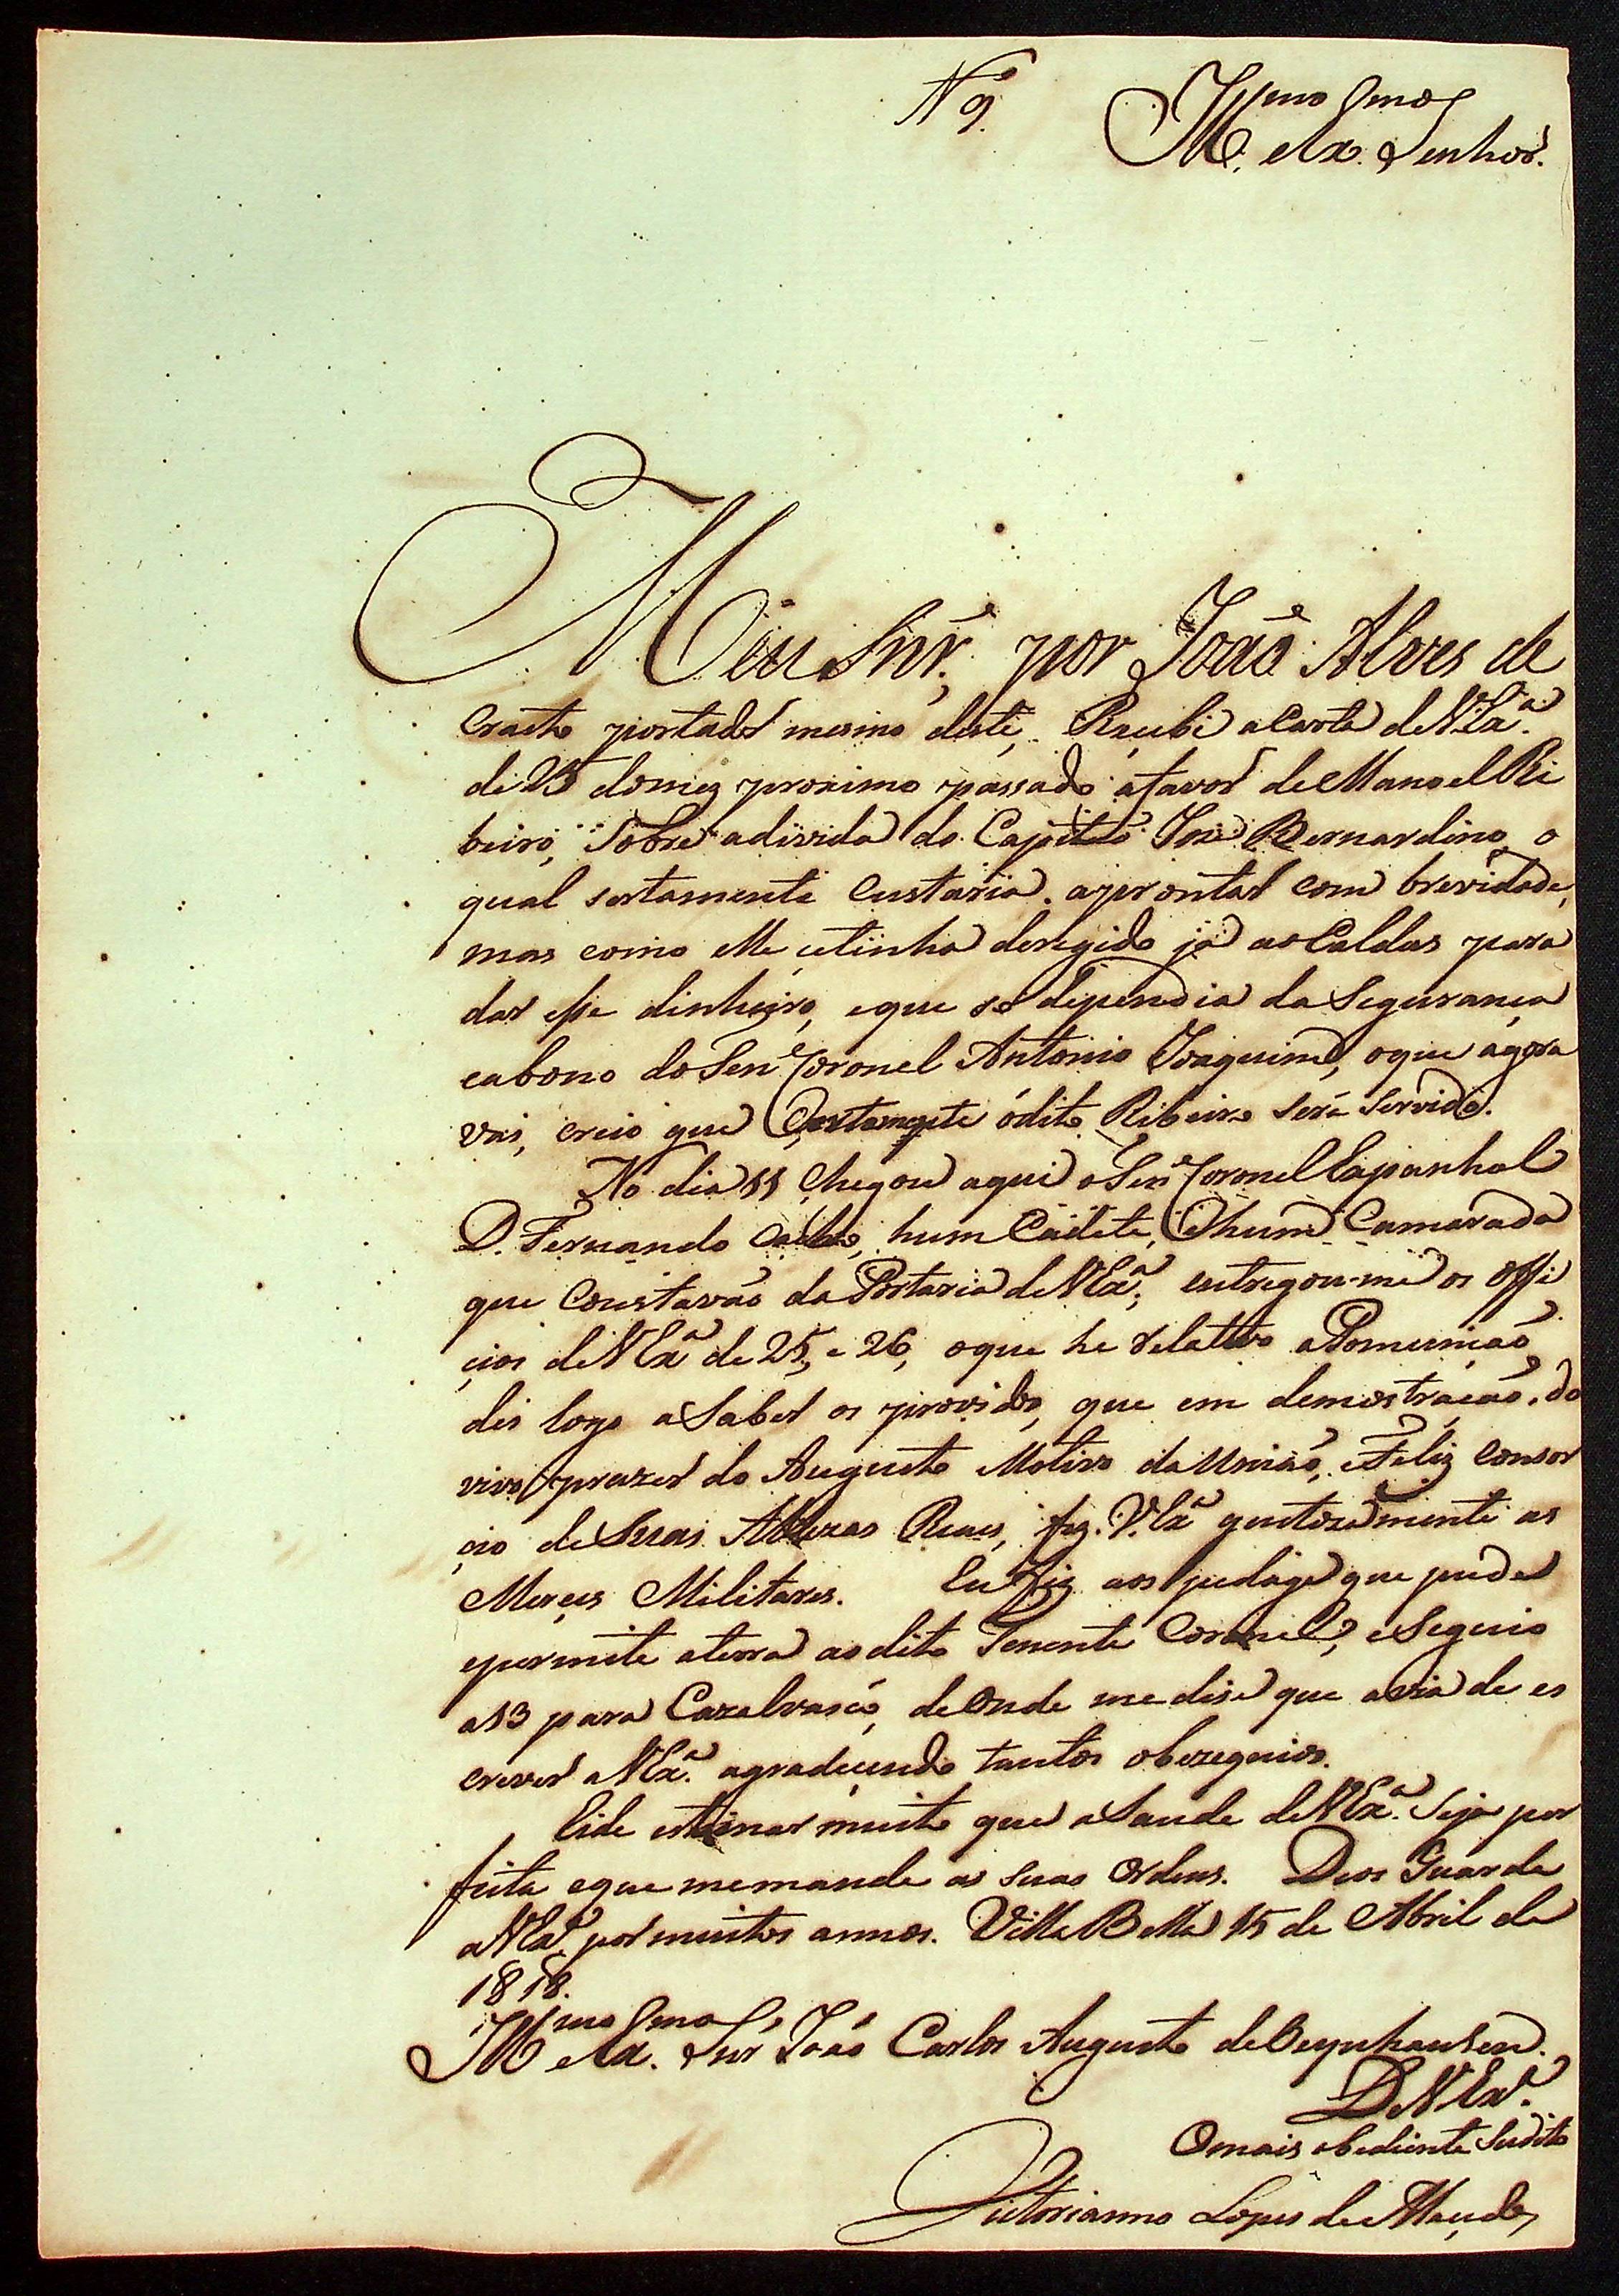 N.º 9.
Ill.mo Ex.mo Senhor.
Meu Snr.', por João Alves de
Crasto portador mesmo deste, Reçubi a Carta de V. Ex.ª
de 25 do mez proximo passado afavor de Manoel Ri
beiro, Sobre adivida do Capitaõ José Bernardino, o
qual sertamente Custaria aprontar com brevidade,
mas como elle setinha deregido já ao Caldas para
dar esse dinheiro, eque só dependia da Segurança
eabono do Senr. Coronel Antonio Joaquim, oque agora
vai, creio que Certamente ódito Ribeiro será Servido.
No dia 11 Chegou aqui o Senr. Coronel Espanhol
D. Fernando Cacho, hum Cadete, Ehum Camarada
que Constavaõ da Portaria de V. Ex.ª, entregou-me os Offi
çios de V. Ex.ª de 25, e 26, oque he relativo a Promuçaõ
deis logo a Saber os providos, que em demostraçaõ, do
vivo prazer do Augusto Motivo da Uniaõ, e Feliz Consor
çio de Suas Altezas Reaes, fez. V. Ex.ª gentozamente as
Merçes Militares. Eu Fiz aos pudága que pude
epermite aterra aodito Tenente Coronel, e Seguio
a 13 para Cazalvasco, de Onde me dise que avia de es
crever a V. Ex.ª agradeçendo tantos obezequios.
Eide estimar muito que a Saude de V. Ex.ª Seja per
feita eque memande as suas Ordens. Deos Guarde
a V. Ex.ª por muitos annos. Villa Bella 15 de Abril de
1818.
Ill.mo Ex.mo Snr. João Carlos Augusto de Oeynhausen.
D. V. Ex.ª
Omais obediente Sudito
Victorianno Lopes de Maçedo